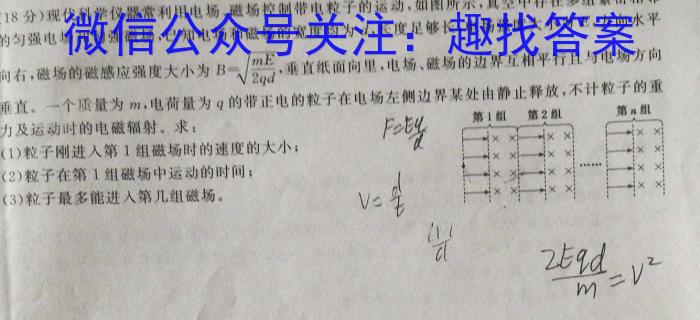 (18分)现代科学仪器常利用电场、磁场控制带电粒子的运动,如图所示,真空中存在多组紧密相邻
的匀强电
水平
微信公众号关注：趣找答案
向右,磁场的磁感应强度大小为 B=√(mE/2qd),垂直纸面向里,电场、磁场的边界互相平行且与电场方向
垂直。一个质量为 m,电荷量为 q 的带正电的粒子在电场左侧边界某处由静止释放,不计粒子的重
力及运动时的电磁辐射。求:
(1)粒子刚进入第 1 组磁场时的速度的大小;
(2)粒子在第 1 组磁场中运动的时间;
(3)粒子最多能进入第几组磁场。
第 1 组 第 2 组 第 n 组
× × × × × ×
× × × × × ×
× × × × …… × ×
× × × × × ×
V=d/t
2Eqd/m=V²